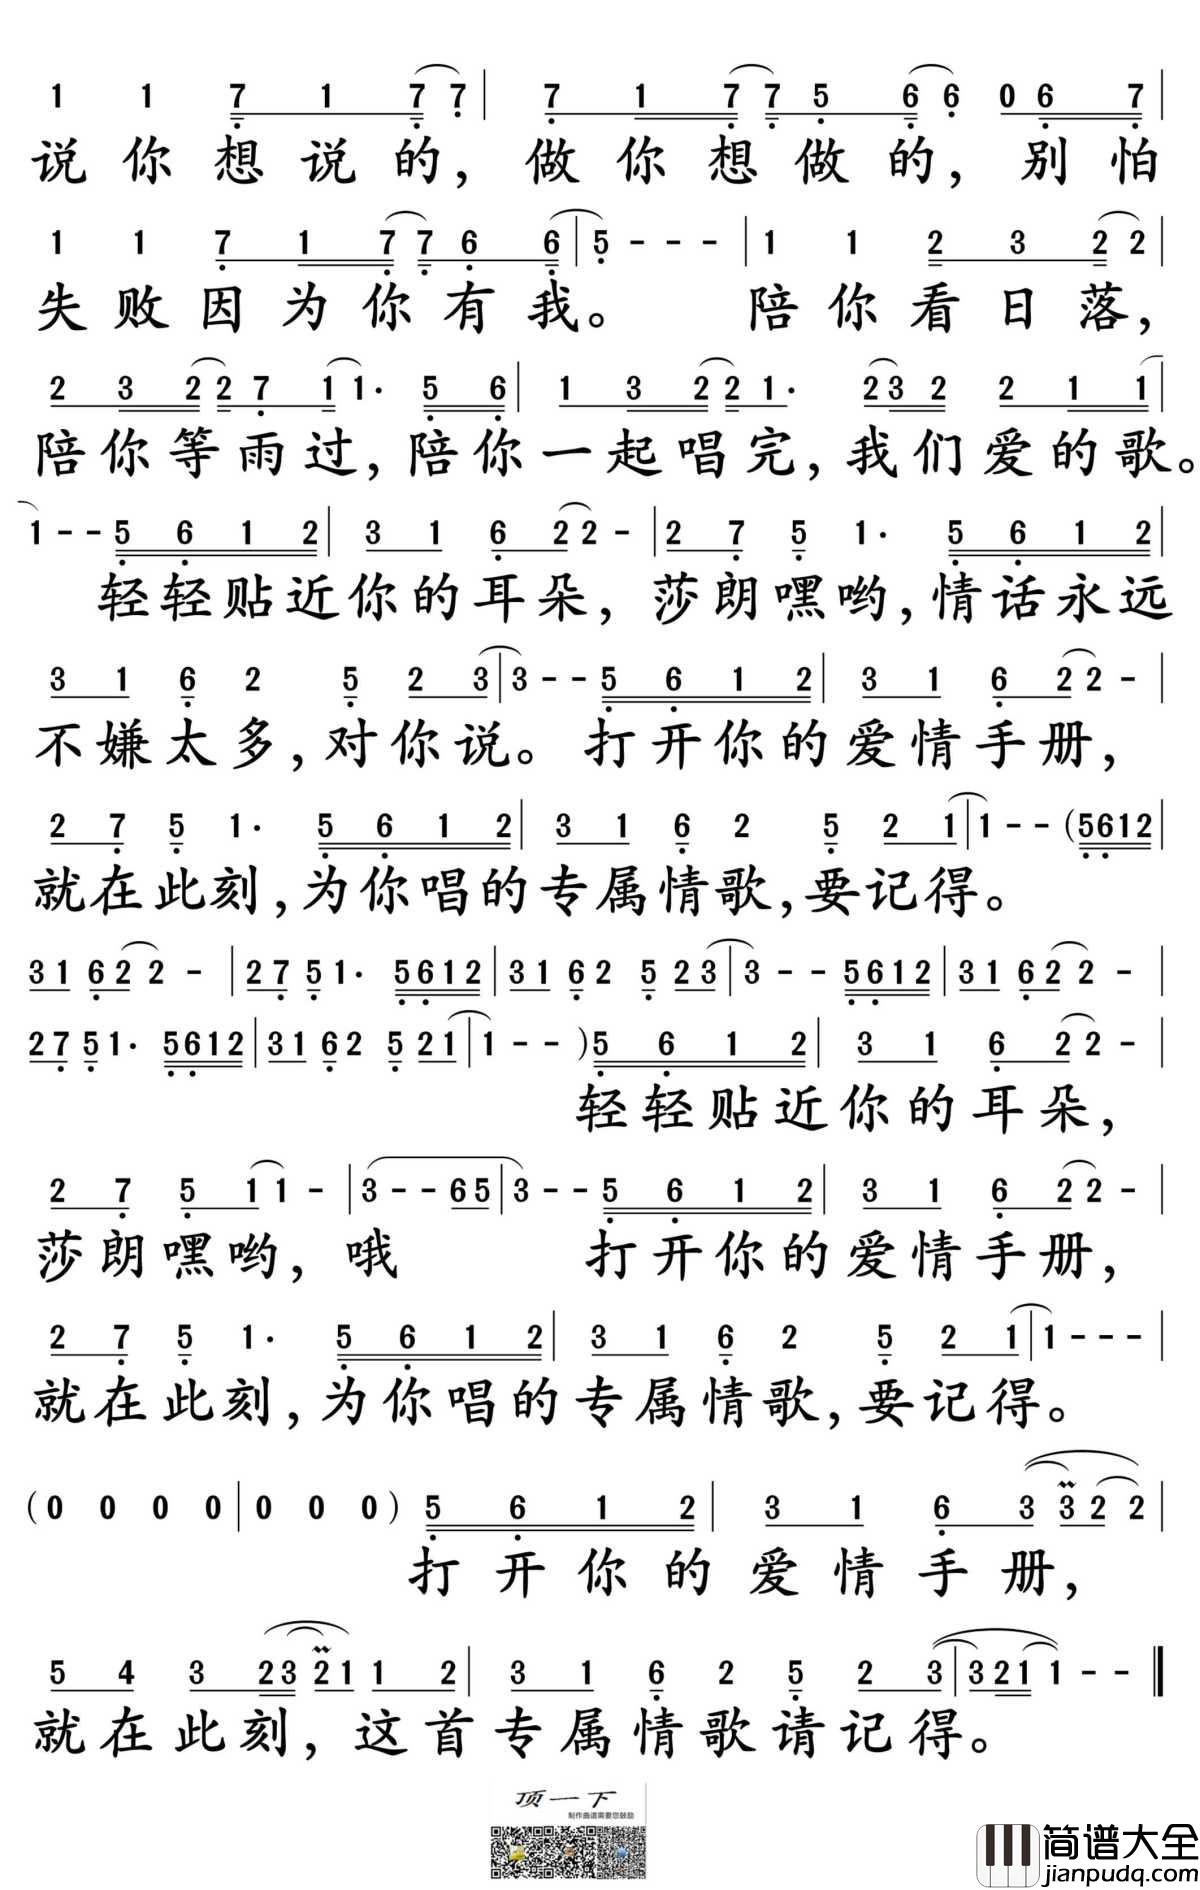 1 1 7 1 7 7 | 7 1 7 7 5 6 6 0 6 7 |
说你想说的，做你想做的，别怕
1 1 7 1 7 7 6 6 | 5 - - - | 1 1 2 3 2 2 |
失败因为你有我。陪你看日落，
2 3 2 2 7 1 1· 5 6 | 1 3 2 2 1· 2 3 2 2 1 1 |
陪你等雨过，陪你一起唱完，我们爱的歌。
1 - - 5 6 1 2 | 3 1 6 2 2 - | 2 7 5 1· 5 6 1 2 |
轻轻贴近你的耳朵，莎朗嘿哟，情话永远
3 1 6 2 5 2 3 | 3 - - 5 6 1 2 | 3 1 6 2 2 - |
不嫌太多，对你说。打开你的爱情手册，
2 7 5 1· 5 6 1 2 | 3 1 6 2 5 2 1 | 1 - - (5 6 1 2 |
就在此刻，为你唱的专属情歌，要记得。
3 1 6 2 2 - | 2 7 5 1· 5 6 1 2 | 3 1 6 2 5 2 3 | 3 - - 5 6 1 2 | 3 1 6 2 2 - |
2 7 5 1· 5 6 1 2 | 3 1 6 2 5 2 1 | 1 - - ) 5 6 1 2 | 3 1 6 2 2 - |
轻轻贴近你的耳朵，
2 7 5 1 1 - | 3 - - 6 5 | 3 - - 5 6 1 2 | 3 1 6 2 2 - |
莎朗嘿哟，哦 打开你的爱情手册，
2 7 5 1· 5 6 1 2 | 3 1 6 2 5 2 1 | 1 - - - |
就在此刻，为你唱的专属情歌，要记得。
(0 0 0 0 | 0 0 0) 5 6 1 2 | 3 1 6 3 3 2 2 |
打开你的爱情手册，
5 4 3 2 3 2 1 1 2 | 3 1 6 2 5 2 3 | 3 2 1 1 - - ‖
就在此刻，这首专属情歌请记得。
顶一下
制作曲谱需要您鼓励
简谱大全
jianpudq.com